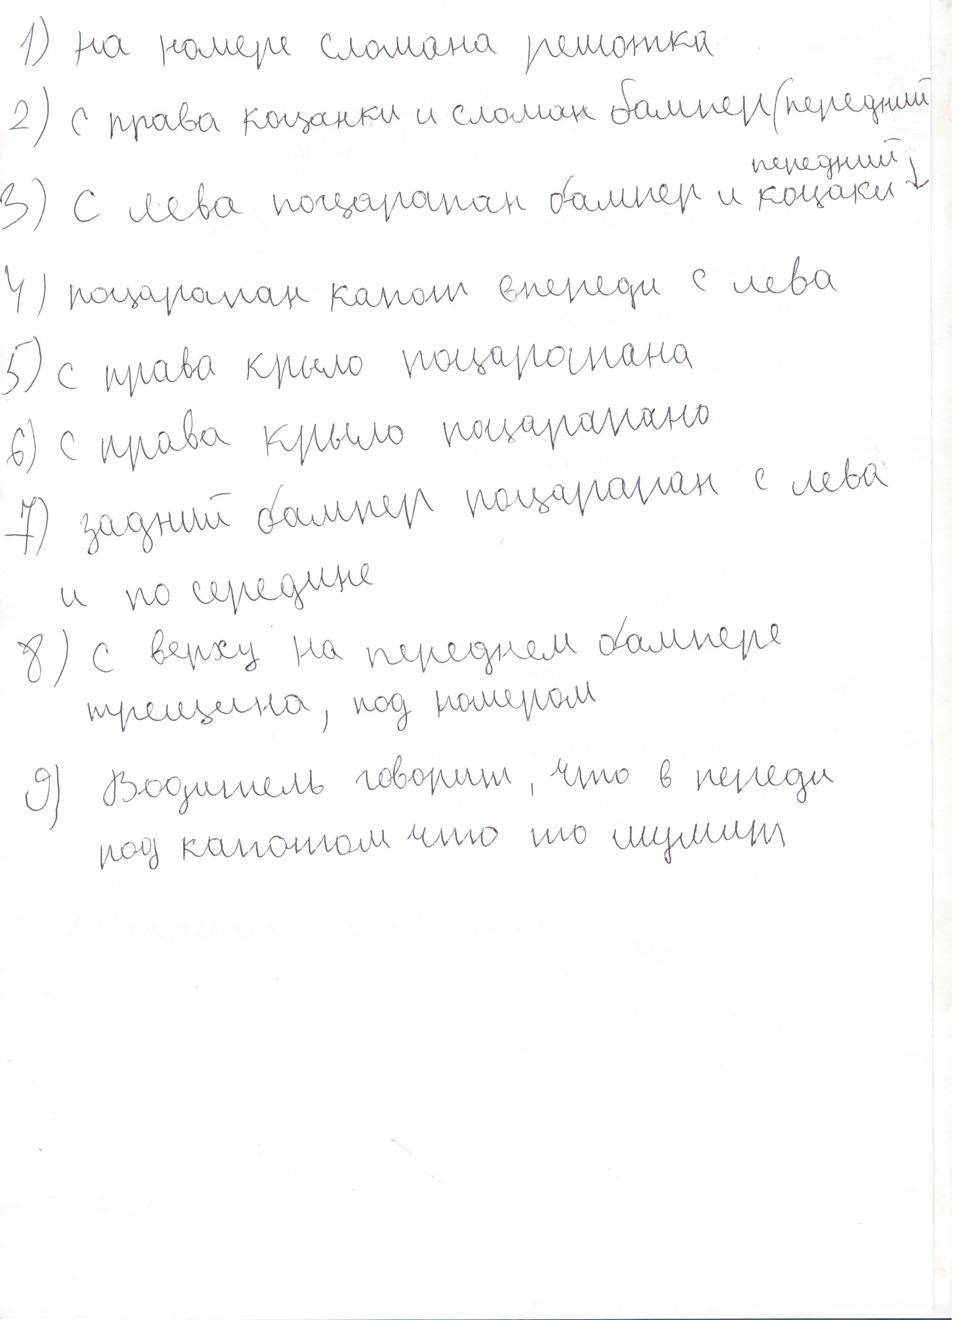 1) на номере сломана решотка
2) с права коцанки и сломан бампер (передний
передний ↓
3) с лева поцарапан бампер и коцаки
4) поцарапан капот впереди с лева
5) с права крыло поцарапана
6) с права крыло поцарапано
7) задний бампер поцарапан с лева
и по середине
8) с верху на переднем бампере
трещина, под номером
9) Водитель говорит, что в переди
под капотом что то шумит